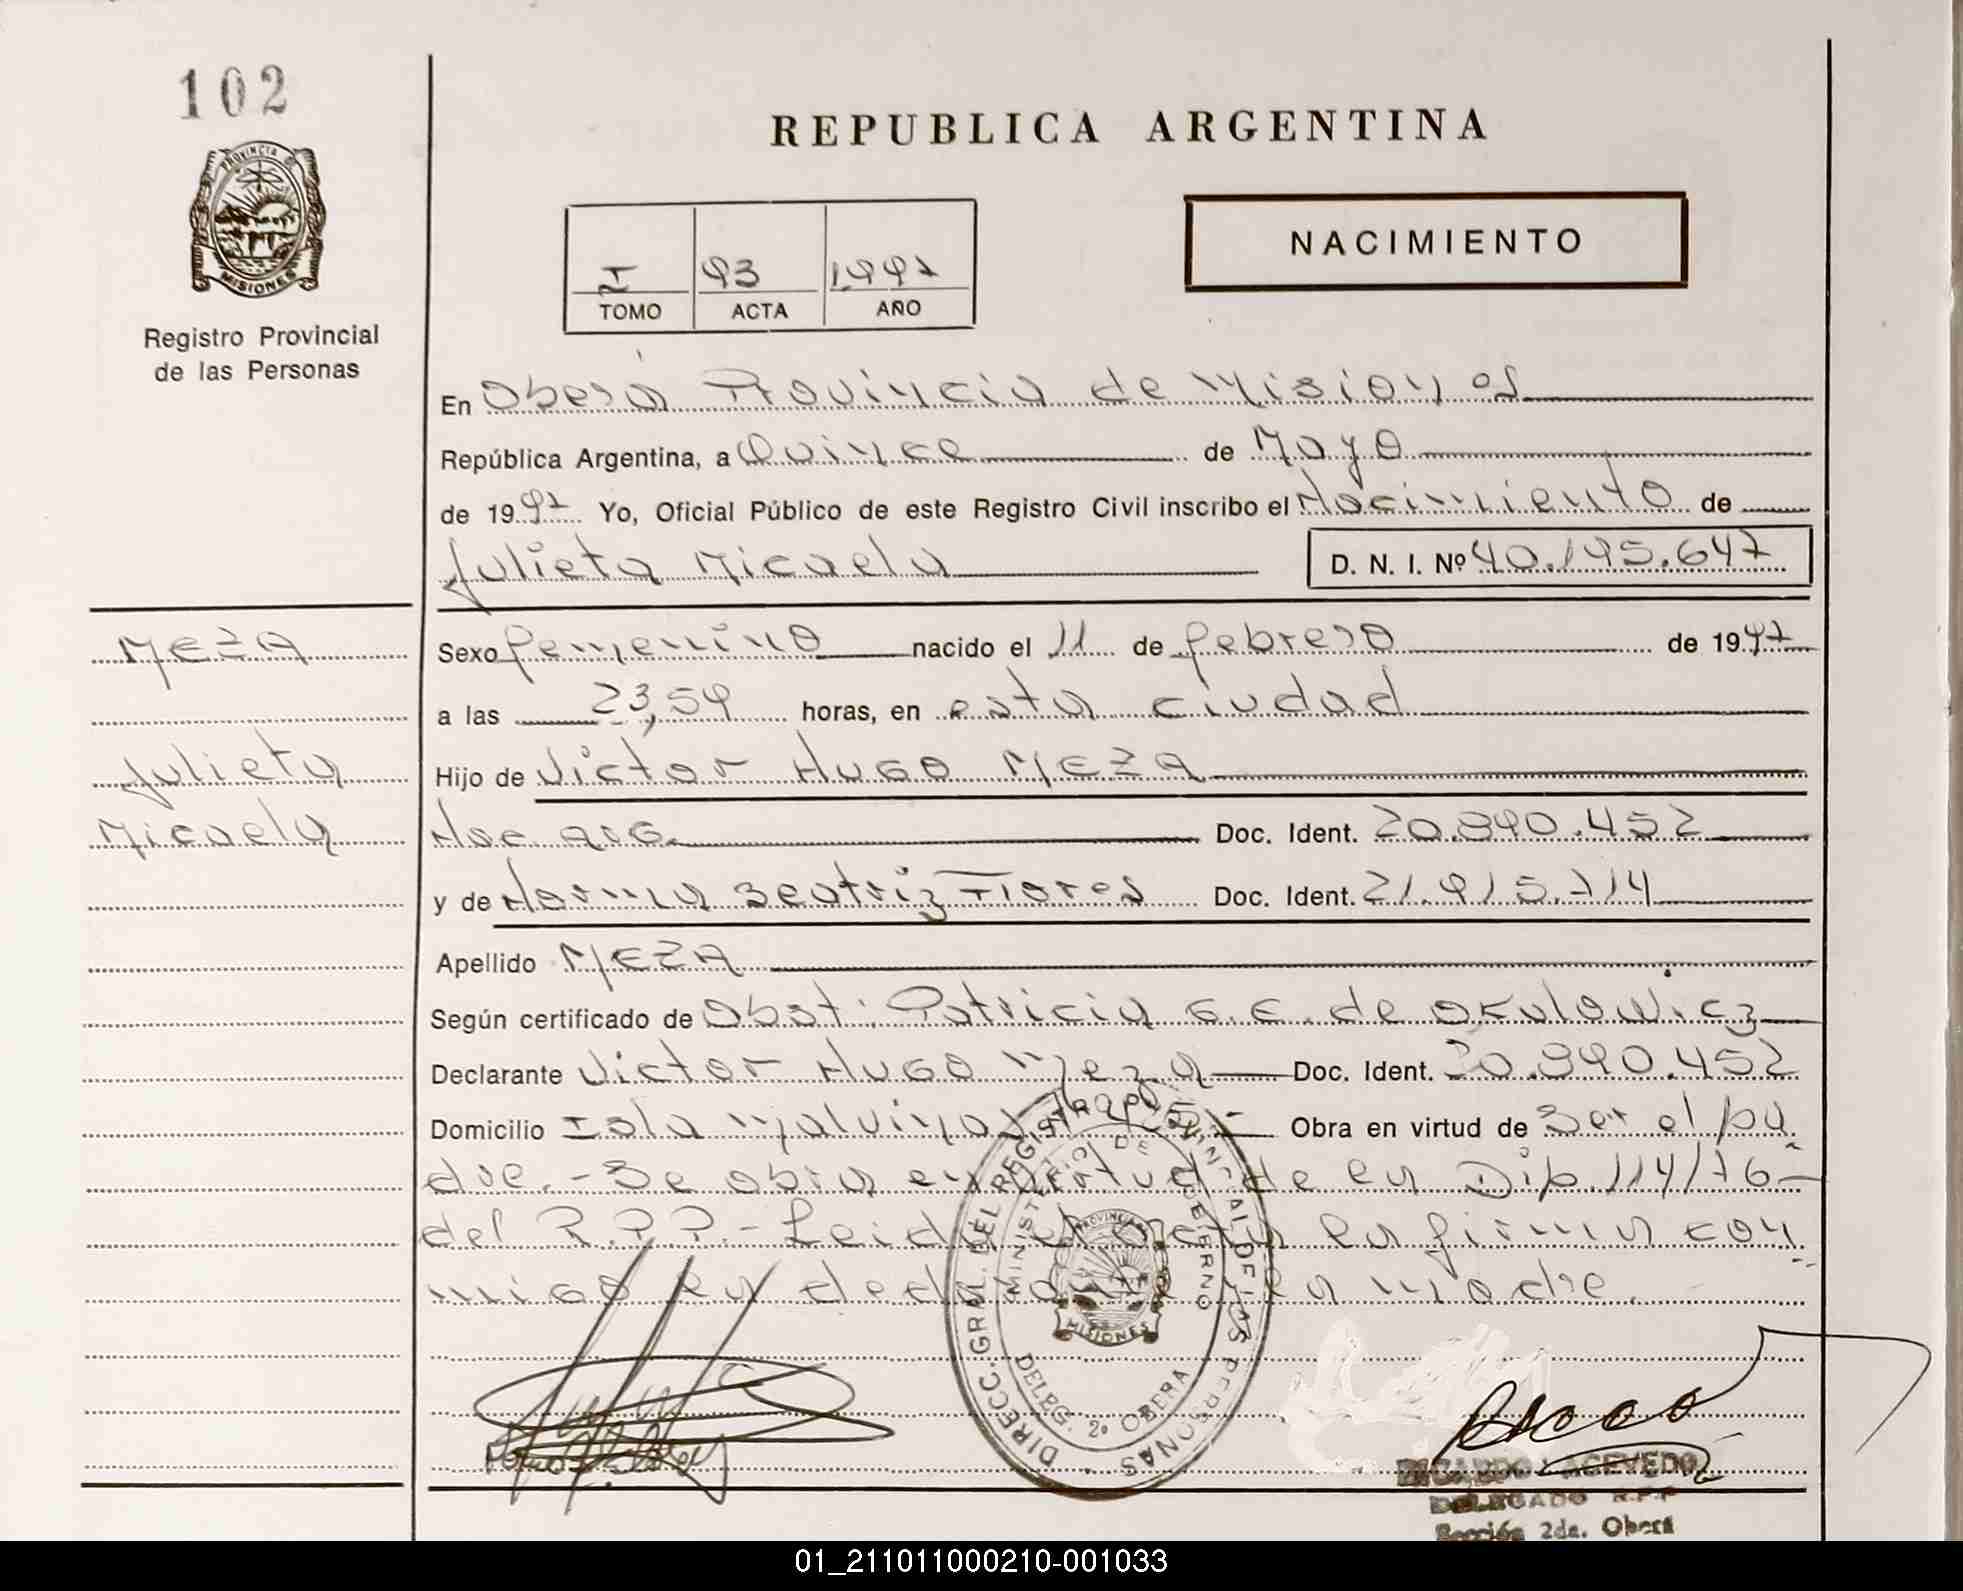 102
REPUBLICA ARGENTINA
PROVINCIA DE
MISIONES
Registro Provincial
de las Personas
NACIMIENTO
I 93 1.997
TOMO ACTA AÑO
En Oberá Provincia de Misiones
República Argentina, a Quince de Mayo
de 1997 Yo, Oficial Público de este Registro Civil inscribo el Nacimiento de
Julieta Micaela D. N. I. Nº 40.195.647
MEZA
Sexo femenino nacido el 11 de febrero de 1997
a las 23,59 horas, en esta ciudad
Julieta
Hijo de Victor Hugo MEZA
Micaela
Nac. arg. Doc. Ident. 20.890.452
y de Norma Beatriz Flores Doc. Ident. 21.915.714
Apellido MEZA
Según certificado de Obst. Patricia G. E. de Okulowicz
Declarante Victor Hugo Meza Doc. Ident. 20.890.452
Domicilio Isla Malvinas Obra en virtud de Ser el pa
dre.- Se obra en virtud de la Disp. 114/76-
del R.P.P.- Leida el acta la firma con
migo el declarante la madre.
DIRECC. GRAL. DEL REGISTRO PROVINCIAL DE LAS PERSONAS
MINISTERIO DE GOBIERNO
MISIONES
DELEG. 2º OBERA
RICARDO ACEVEDO
DELEGADO R.P.P
Sección 2da. Oberá
01_211011000210-001033